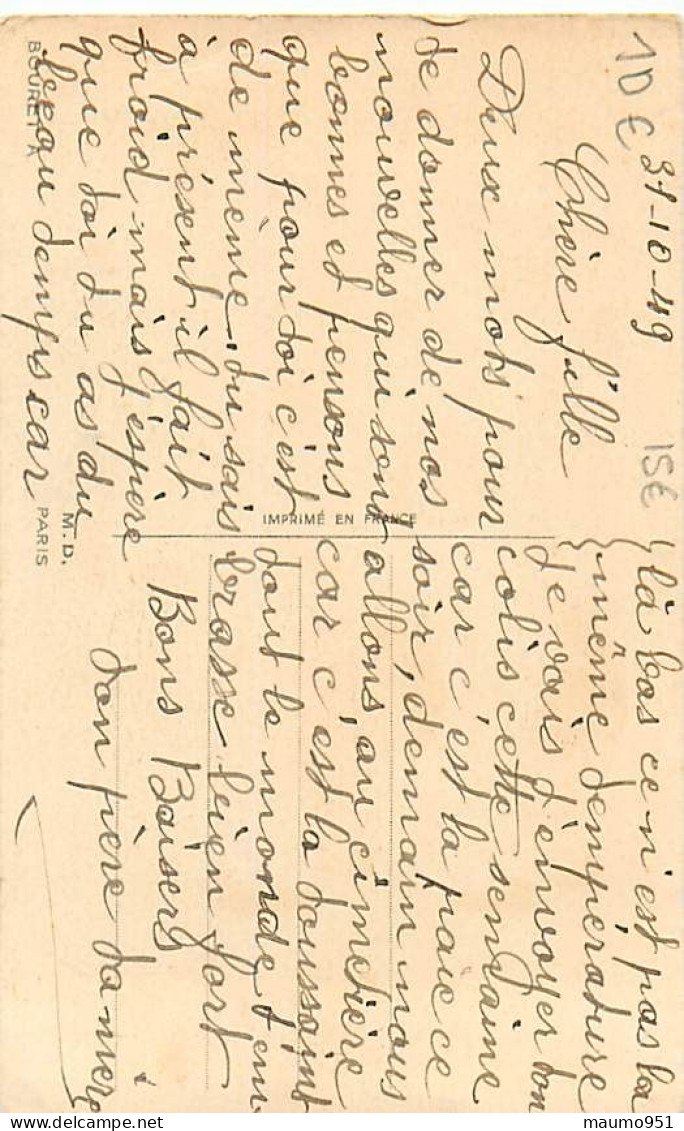 10 €
31-10-49
15€
Chère fille
Deux mots pour
te donner de nos
nouvelles qui sont
bonnes et pensons
que pour toi c'est
de meme, tu sais
a présent il fait
froid mais j'espère
que toi tu as du
beau temps car
là bas ce n'est pas la
même température
Je vais t'envoyer ton
colis cette semaine
car c'est la paie ce
soir, demain nous
allons, au cimetière
car c'est la toussaint
tout le monde t'em
brasse bien fort
Bons Baisers
ton père ta mère
IMPRIMÉ EN FRANCE
BOURET A
M. D.
PARIS
maumo951